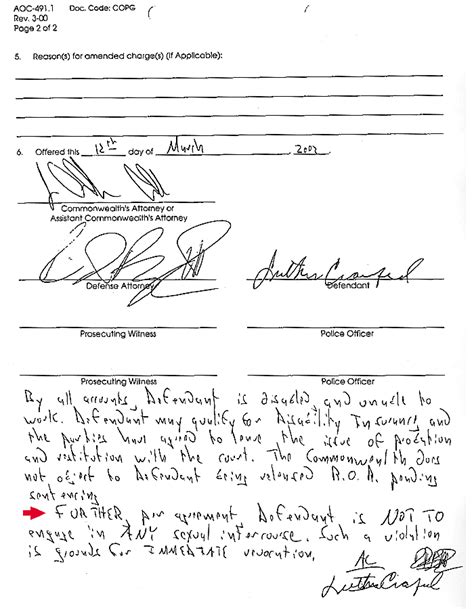 AOC-491.1 Doc. Code: COPG
Rev. 3-00
Page 2 of 2
5. Reason(s) for amended charge(s) (If Applicable):
6. Offered this 12th day of March, 2002
Commonwealth's Attorney or
Assistant Commonwealth's Attorney
Luther Crawford
Defense Attorney Defendant
Prosecuting Witness Police Officer
Prosecuting Witness Police Officer
By all accounts, Defendant is disabled and unable to
work. Defendant may qualify for Disability Insurance, and
the parties have agreed to leave the issue of probation
and restitution with the court. The Commonwealth does
not object to Defendant being released R.O.R. pending
sentencing.
FURTHER, per agreement, Defendant is NOT TO
engage in ANY sexual intercourse. Such a violation
is grounds for IMMEDIATE revocation.
Luther Crawford